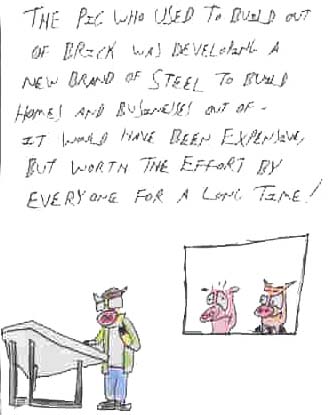 THE PIG WHO USED TO BUILD OUT
OF BRICK WAS DEVELOPING A
NEW BRAND OF STEEL TO BUILD
HOMES AND BUSINESSES OUT OF -
IT WOULD HAVE BEEN EXPENSIVE,
BUT WORTH THE EFFORT BY
EVERYONE FOR A LONG TIME!